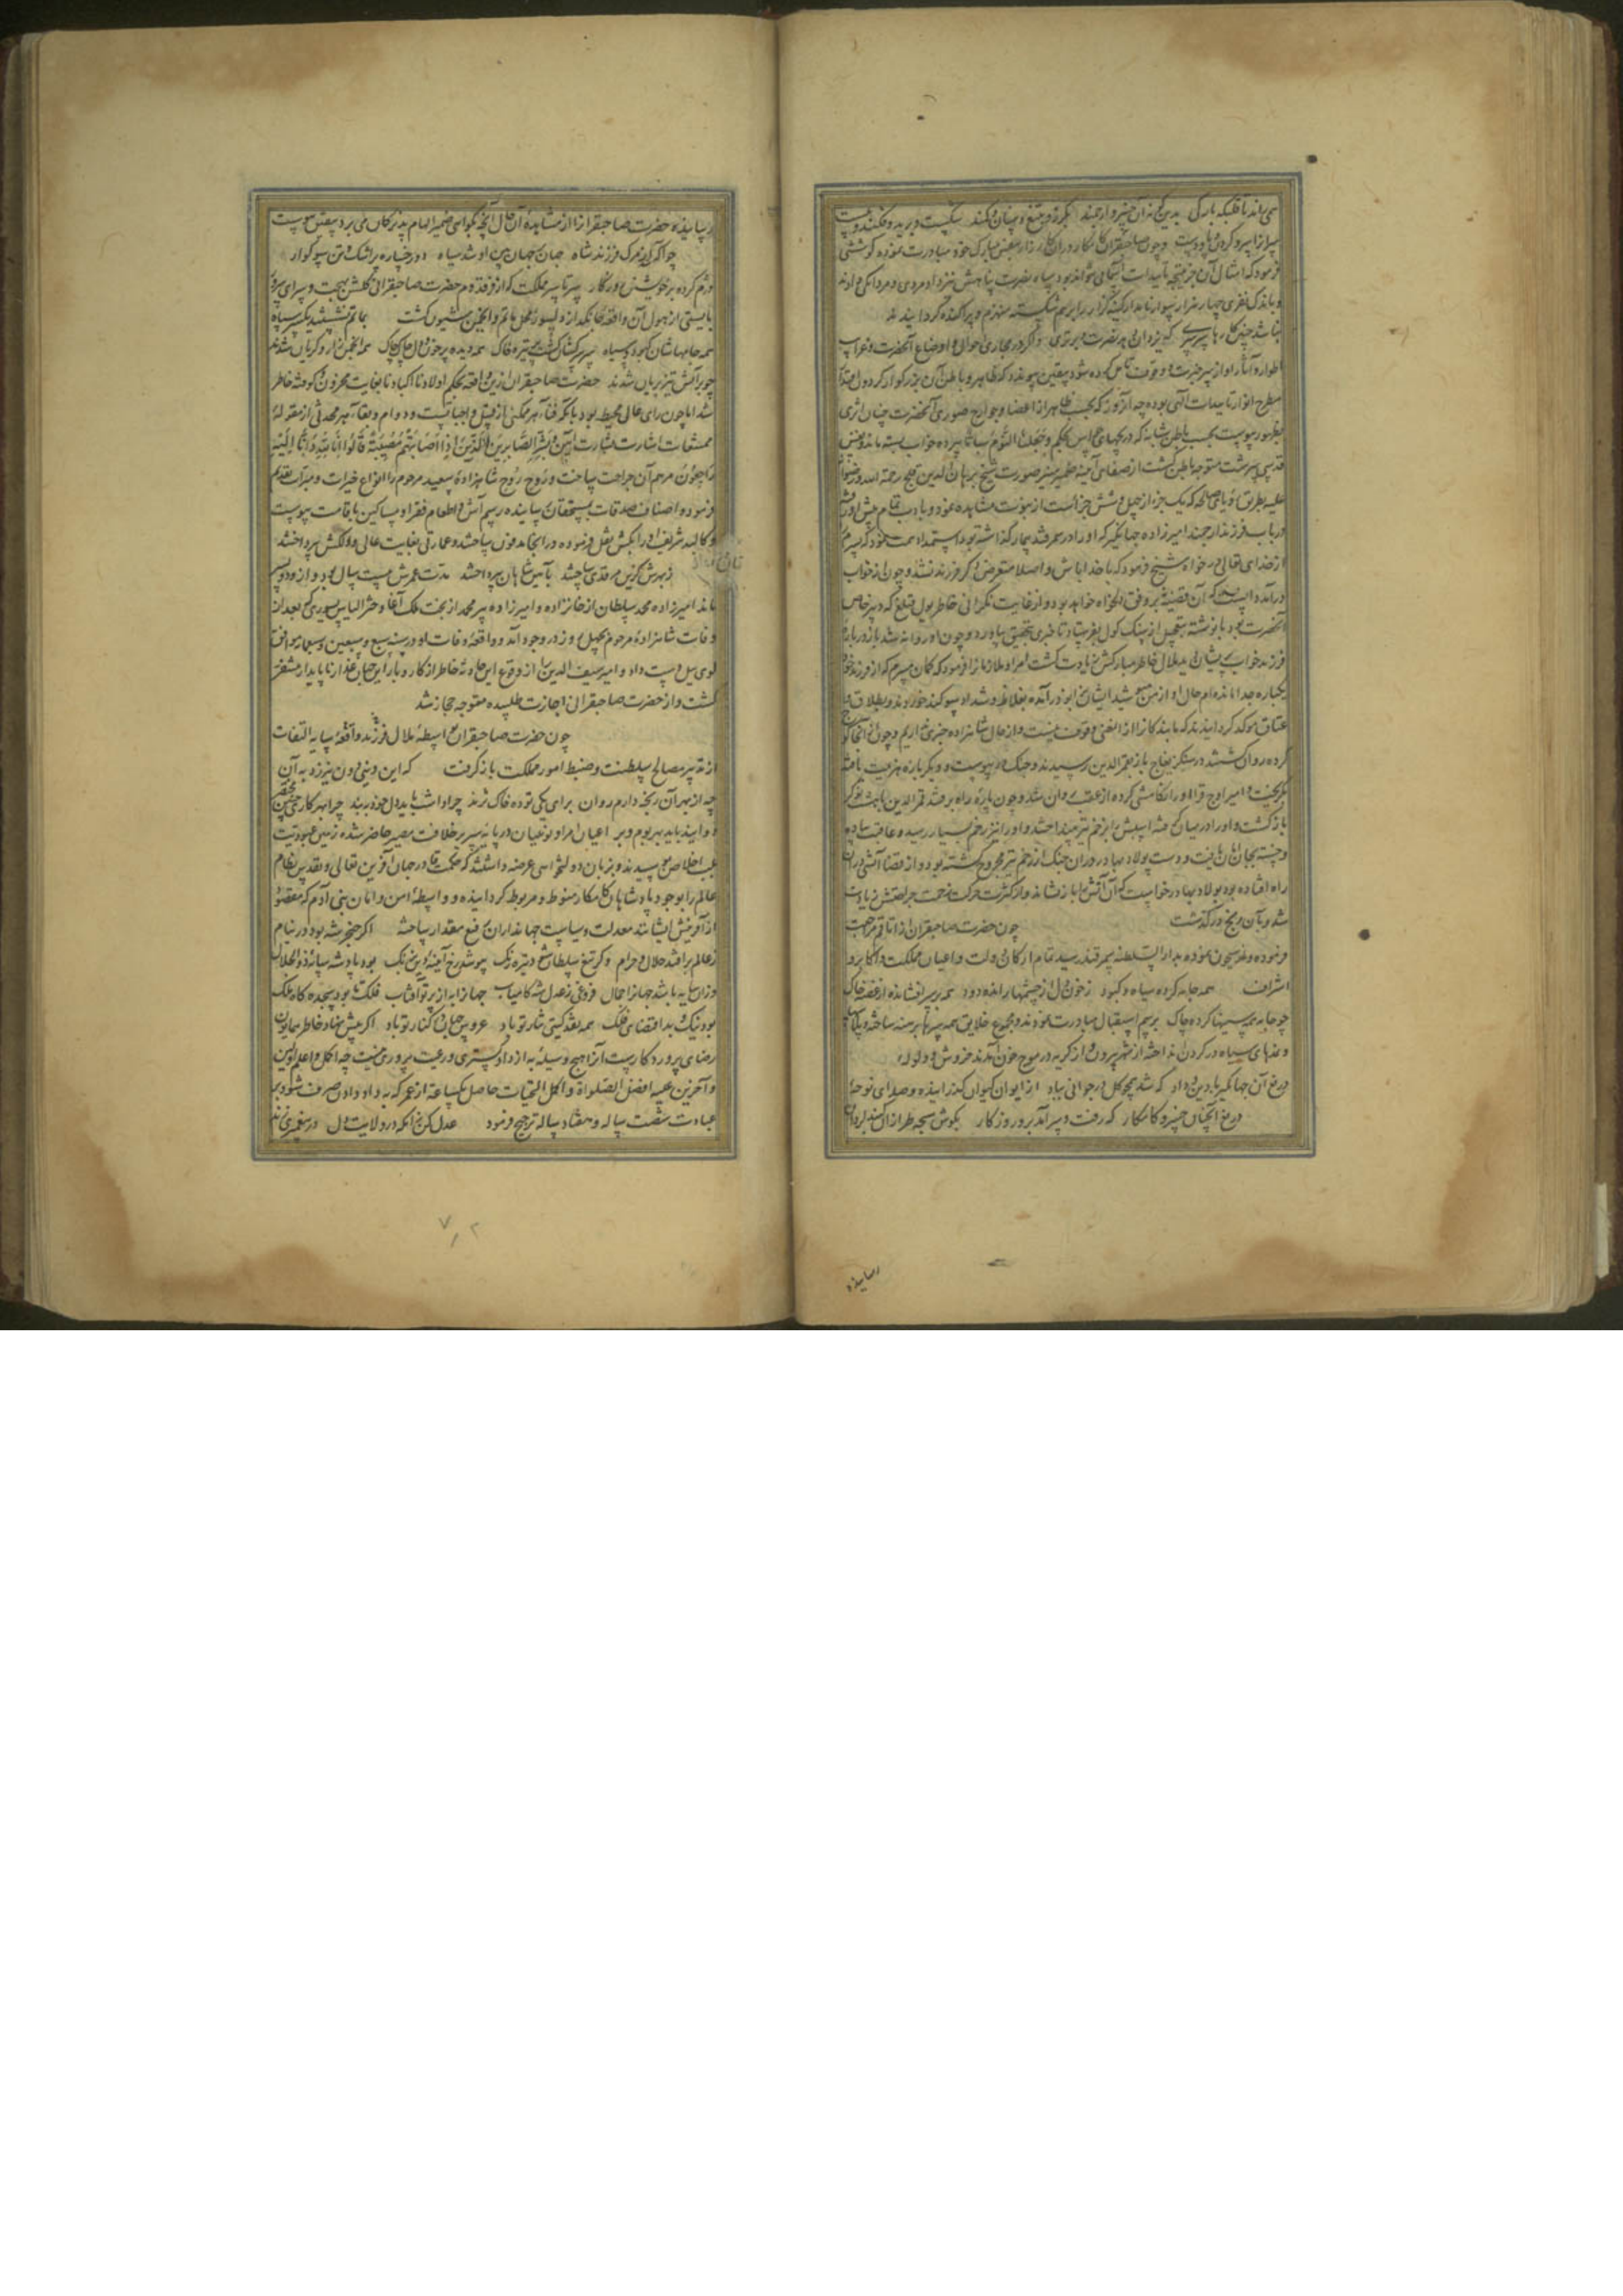 همی راند با قلبکه بارکی بدین کونه آن خسرو ارجمند بکرز و بتیغ و سنان و کمند شکست و برید و فکند و ببست
فرمود که امثال آن جز نتیجه تاییدات آسمانی نتواند بود سپاه نصرت پناهش نیز داد مردی و مردانکی دادند
و باندک نفری چهار هزار سوار نامدار کینه کزار را برهم شکسته منهزم و پراکنده کردانیدند
نباشد چنین کارها سرسری که یزدان دهد نصرت و برتری و اکر در مجاری احوال و اوضاع آنحضرت و غرایب
مطرح انوار تاییدات الهی بوده چه آنروز که بحسب ظاهر از اعضا و جوارح صوری آنحضرت چنان اثری
قدسی سرشت متوجه باطن کشت از صفای آینه ضمیر منیر صورت شیخ برهان الدین قلیج رحمة الله و رضوانه
علیه بطریق رویای صالحه که یک جزء از چهل و شش جزء است از نبوت مشاهده نمود و بادب تمام پیش او رفت
و در باب فرزند ارجمند امیرزاده جهانکیر که او را در سمرقند بیمار کذاشته بود استمداد همت نمود که پسرم
از خدای تعالی درخواه شیخ فرمود که با خدا باش و اصلا متعرض ذکر فرزند نشد و چون از خواب
درآمد دانست که آن قضیه نه بر وفق دلخواه خواهد بود و از غایت نکرانی خاطر یول قتلغ که دبیر خاص
آنحضرت بود بانوشته بتعجیل از سنک کول بفرستاد تا خبری بتحقیق بیاورد و چون او روانه شد باز درباره
فرزند خوابی پریشان دید ملال خاطر مبارکش زیادت کشت امرا و ملازمان را فرمود که کمان میبرم که از فرزند خود
یکباره جدا مانده‌ام حال او از من مپوشید ایشان بزانو درآمده بغلاظ و شداد سوکند خوردند و بطلاق و
عتاق موکد کردانیدند که ما بندکانرا از این معنی وقوف نیست و از حال شاهزاده خبری نداریم و چون از آنجا کوچ
کرده روان شدند در سنکزیغاج باز بقمرالدین رسیدند و جنک در پیوست و دیکر باره هزیمت یافته
بکریخت و امیر اوچ قرا او را تکامشی کرده از عقب روان شد و چون پاره راه برفتند قمرالدین با هشت نوکر
بازکشت و او را در میان کرفته اسپش بزخم تیر بینداختند و او را نیز زخم بسیار رسید و عاقبت پیاده
و خسته بجان امان یافت و دست پولاد بهادر در آن جنک از زخم تیر مجروح کشته بود و از قضا آتشی در آن
راه افتاده بود پولاد بهادر خواست که آن آتش را بازنشاند و از کثرت حرکت زحمت جراحتش زیادت
شد و بآن رنج درکذشت چون حضرت صاحبقران از اتاقم مراجعت
فرموده و از سیحون عبور نموده بدار السلطنه سمرقند رسید تمام ارکان دولت و اعیان مملکت و اکابر و
اشراف همه جامه کرده سیاه و کبود ز خون دل از چشمها رانده رود همه بر سر افشانده از غصه خاک
چو جامه همه سینها کرده چاک برسم استقبال مبادرت نمودند و مجموع خلایق همه سرها برهنه ساخته و پلاسها
و نمدهای سیاه در کردن انداخته از شهر بیرون و از کریه در موج خون آمدند خروش و ولوله
دریغ آن جهانکیر با دین و داد که شد همچو کل در جوانی بباد از ایوان کیوان کذرانیده و صدای نوحه
دریغ آنچنان خسرو کامکار که رفت و سرآمد برو روزکار بکوش سبحه طرازان سدره
رسانیده
رسانیده حضرت صاحبقرانرا از مشاهده آن حال آنچه بکواهی ضمیر الهام پذیر کمان می برد بیقین پیوست
چو آکه شد از مرک فرزند شاه جهان بر جهان بین او شد سیاه دو رخساره پر اشک و تن سوکوار
دژم کرده بر خویشتن روزکار سرتاسر مملکت که از فر قدوم حضرت صاحبقرانی کلشن بهجت و سرای سرور
بایستی از هول آن واقعه جانکداز دلسوز محل ماتم و انجمن شیون کشت بماتم نشستند یکسر سپاه
همه جامهاشان کبود و سیاه همه دیده پر خون و دل چاک چاک همه انجمن زار و کریان شدند
چو بر آتش تیز بریان شدند حضرت صاحبقران ازین واقعه بحکم اولادنا اکبادنا بغایت محزون و کوفته خاطر
شد اما چون رای عالی محیط بود بانکه فنا بهر ممکنی باز قبیل واجباتست و دوام و بقا بهر محدثی از مقوله
ممتنعات اشارت بشارت آیین وَبَشِّرِ الصَّابِرِینَ الَّذِینَ إِذَا أَصَابَتْهُم مُّصِیبَةٌ قَالُوا إِنَّا لِلَّهِ وَإِنَّا إِلَیْهِ
رَاجِعُونَ مرهم آن جراحت ساخت و روح روح شاهزاده سعید مرحوم را انواع خیرات و مبرات تقدیم
فرمود و اصناف صدقات بمستحقان رسانیده رسم آش و اطعام فقرا و مساکین باقامت پیوست
و کالبد شریف او را بکش نقل فرموده در آنجا مدفون ساختند و عمارتی بغایت عالی و دلکش پرداختند
ز بهرش کزین مرقدی ساختند بآیین شاهان بپرداختند مدت عمرش بیست سال بود و از و دو پسر
ماند امیرزاده محمد سلطان از خانزاده و امیرزاده پیرمحمد از بخت ملک آغا دختر الیاس یسوری که بعد از
وفات شاهزاده مرحوم بچهل روز در وجود آمد و واقعه وفات او در سنه سبع و سبعین و سبعمائه موافق
لوی ییل دست داد و امیر سیف الدین را از وقوع این حادثه خاطر از کار و بار این جهان غدار ناپایدار متنفر
کشت و از حضرت صاحبقرانی اجازت طلبیده متوجه حجاز شد
چون حضرت صاحبقران بواسطه ملال فرزند واقعه سایه التفات
از تدبیر مصالح سلطنت و ضبط امور مملکت باز کرفت که این دنیی دون نیرزد به آن
که از بهر آن رنجه داریم روان برای یکی توده خاک نژند
اعیان امرا و نوئینان در پایه سریر خلافت مصیر حاضر شده زمین عبودیت
بلب اخلاص بوسیدند و بزبان دولتخواهی عرضه داشتند که حکمت قادر جهان آفرین تعالی و تقدس نظام
عالم را بوجود پادشاهان کامکار منوط و مربوط کردانیده و واسطه امن و امان بنی آدم که مقصود
از آفرینش ایشانند معدلت و سیاست جهانداران رفیع مقدار ساخته اکر خنجر شه بود در نیام
ز عالم برافتد حلال و حرام وکر تیغ سلطان شود تیره رنک بپوشد رخ آینه دین زنک بود پادشه سایه ذوالجلال
وزان سایه باشد جهانرا جمال فروغی ز عدل شه کامیاب جهانرا به از پرتو آفتاب
بود نیک و بد اقتضای فلک همه نقد کیتی نثار تو باد عروس جهان در کنار تو باد اکر پیش نهاد خاطر همایون
رضای پروردکارست آنرا هیچ وسیله به از دادکستری و رعیت پروری نیست چه اکمل و اعلم اولین
و آخرین علیه افضل الصلواة و اکمل التحیات حاصل یکساعته از عمر که به داد دادن صرف شود بر
عبادت شصت ساله و هفتاد ساله ترجیح فرمود عدل کن زانکه در ولایت دل در پیغمبری زند